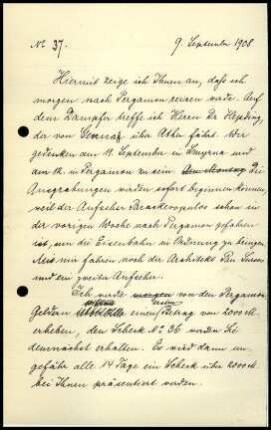 No 37. 9 September 1908
Hiermit zeige ich Ihnen an, dass ich
morgen nach Pergamon reisen werde. Auf
dem Dampfer treffe ich Herrn Dr Hepding,
der von Genua über Athen fährt. Wir
gedenken am 11. September in Smyrna und
am 12. in Pergamon zu sein. Am Montag Die
Ausgrabungen werden sofort beginnen können
weil der Aufseher Paraskevopulos schon in
der vorigen Woche nach Pergamon gefahren
ist, um die Eisenbahn in Ordnung zu bringen.
Mit mir fahren noch der Architekt
und ein zweiter Aufseher.
Ich werde morgen von den Pergamon
Geldern einen Betrag von 2000 M.
erheben, den Scheck No 36 werden Sie
demnächst erhalten. Es wird dann un-
gefähr alle 14 Tage ein Scheck über 2000 M.
bei Ihnen präsentiert werden.